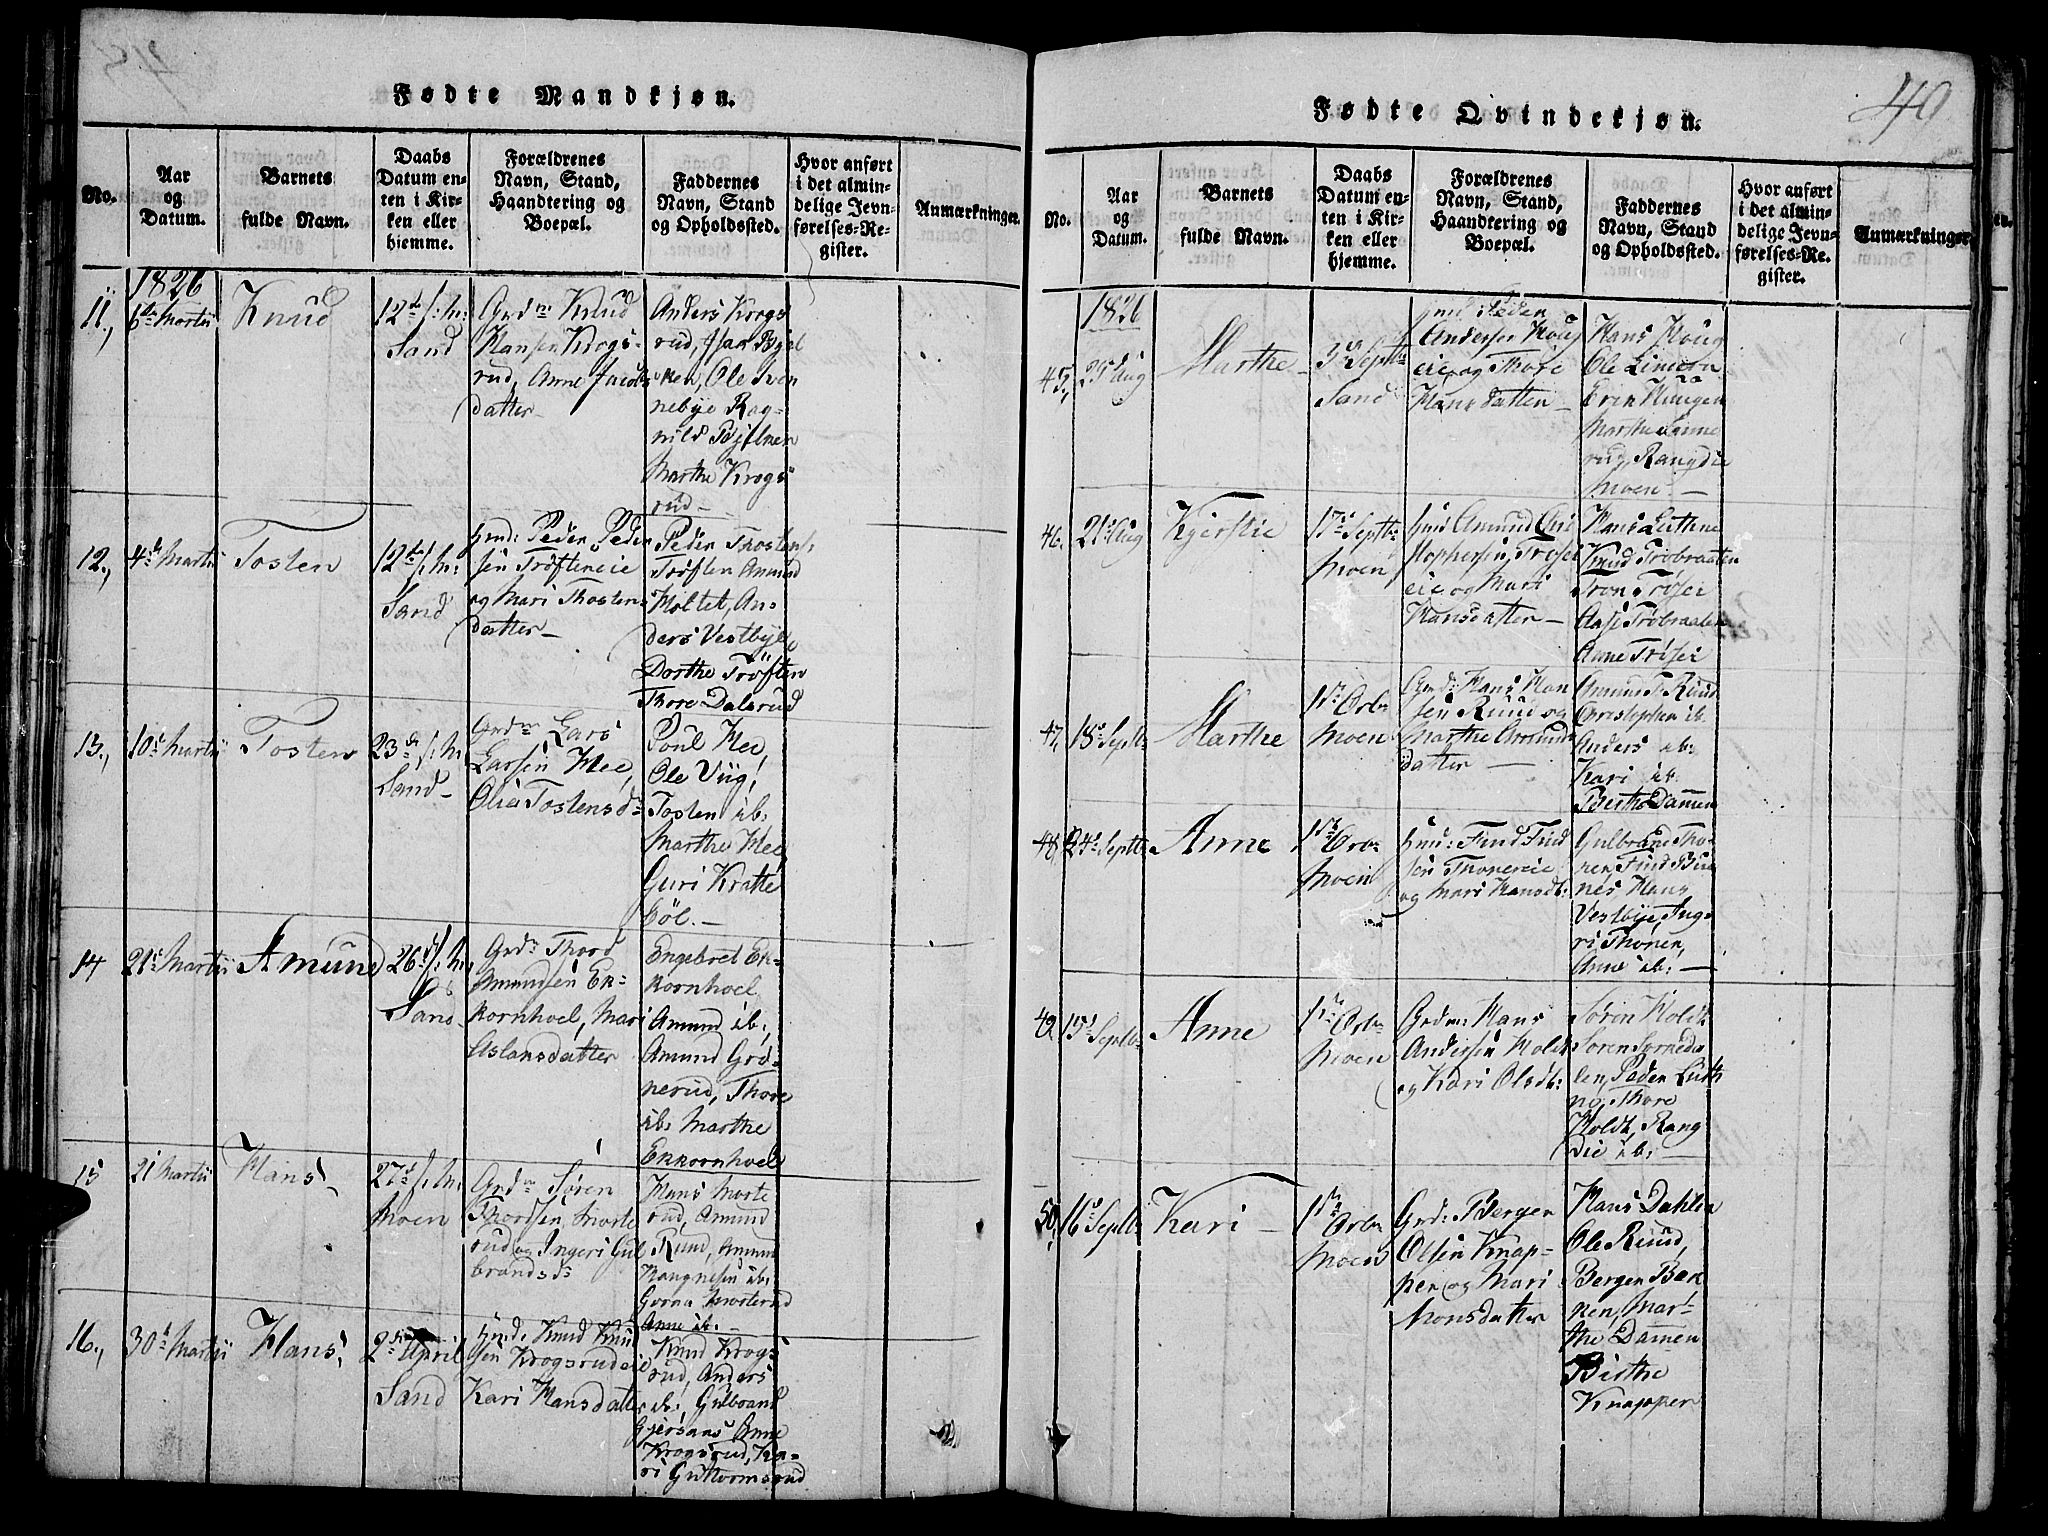 Fødte Mandkjøn.
No.
Aar
og
Datum.
Barnets
fulde Navn.
Daabs
Datum en-
ten i Kir-
ken eller
hjemme.
Forældrenes
Navn, Stand,
Haandtering og
Boepæl.
Faddernes
Navn, Stand
og Opholdssted.
Hvor anført
i det almin-
delige Jevn-
førelses-Re-
gister.
Anmærkninger.
1826
11.,
6te Martii
Knud
12te s: m:
Sand
Grdm Knud
Hansen Krogs-
rud, Anne Jacobs
datter
Anders Krogs
rud,
Ole Sven
nebye Rag-
nild
Marthe Krogs
rud
12.,
4de Martii
Tosten
12te s: m:
Sand
Hmd: Peder Peder
sen Trøften eie
og Mari Thostens
datter
Peder Thostens:
Trøften Amund
Holtet, An-
ders Vestbye
Dorthe Trøften
Thore Dalsrud
13.,
10de Martii
Tosten
23de s: m:
Sand
Grdm Lars
Larsen Mee,
Olia Tostensd
Poul Mee,
Ole Viig,
Tosten ib:
Marthe Mee
Guri Kratte
bøl.
14
21de Martii
Amund
26de s: m:
Sand
Grdm Thord
Amundsen Ek-
kornhoel, Mari
Aslansdatter
Engebret Ek-
kornhoel
Amund ib:,
Amund Grø-
nerud, Thore
ib: Marthe
Ekkornhoel
15
21 Martii
Hans
27de s: m:
Moen
Grdm Søren
Thordsen Morte
rud og Ingeri Gul
brandsd
Hans Morte
rud, Amund
Ruud, Amund
Mangnesen ib:
Gorna Morterud
Anne ib:
16.,
30de Martii
Hans
2den April
Sand
Hmd: Knud Knud
sen Krogsrudeie
Kari Hansdatter
Knud Krogs
rud, Anders
ib:, Gulbrand
Gjersaas Anne
Krogsrud, Ka-
ri Guttormsrud
Fødte Qvindekjøn.
40
No.
Aar
og
Datum.
Barnets
fulde Navn.
Daabs
Datum en-
ten i Kir-
ken eller
hjemme.
Forældrenes
Navn, Stand,
Haandtering og
Boepæl.
Faddernes
Navn, Stand
og Opholdssted.
Hvor anført
i det almin-
delige Jevn-
førelses-Re-
gister.
Anmærkninger
1826
45.,
25 Aug
Marthe
3de Septb
Sand
Hmd: Peder
Andersen Houg
eie og Thore
Hansdatter
Hans Houg
Ole
Marthe
rud, Rangdie
Moen
46.
21de Aug
Kjerstie
17de Septb
Moen
Hmd Amund Chri
stophersen Trøsei
eie og Mari
Hansdatter
Hans
Knud Trøbraaten
Tron Trøsei
Aase Trøbraaten
Anne Trøsei
47.
18de Septb
Marthe
1ste Octbr
Moen
Grd: Hans Han
sen Ruud og
Marthe Amunds
datter
Amund Ruud
Christopher ib.
Anders ib:
Kari ib.
Berthe Damen
48
24de Septb
Anne
1ste Octbr
Moen
Hmd: Find Find
sen Thoneneie
og Mari Hansdt:
Gulbrand Tho-
nen, Find
nes Hans
Vestbye, Ing-
ri Thonen,
Anne ib:
49.
15de Septb
Anne
1ste Octbr
Moen
Grdm: Hans
Andersen Holdt
og Kari Olsdt:
Søren Holdt
Soren
len, Peder
Thore
Holdt, Rang
die ib:
50.
16de Septb
Kari
1ste Octbr
Moen
Grd: Bergen
Olsen Knap-
pen og Mari
Monsdatter
Hans Dahlen
Ole Ruud,
Bergen Bæk
nen, Mar-
the Damen
Birthe
Knappen